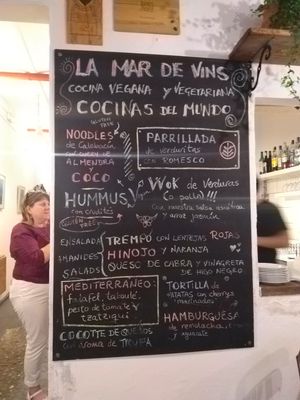 LA MAR DE VINS
COCINA VEGANA Y VEGETARIANA
COCINAS DEL MUNDO
GLUTEN FREE
NOODLES
de Calabacín
ALMENDRA
Y
COCO
HUMMUS
con crudités
GLUTEN FREE
PARRILLADA
de verduritas
con ROMESCO
WOK de Verduras
(o pollo)!!!
con nuestra salsa
y arroz jazmín
ENSALADA
AMANIDES
SALADS
TREMPÓ CON LENTEJAS ROJAS
HINOJO Y NARANJA
QUESO DE CABRA Y VINAGRETA
DE HIGO NEGRO
MEDITERRANEO:
falafel, taboulé,
pesto de tomate y
tzatziqui
COCOTTE DE QUESOS
con aroma de TRUFA
TORTILLA de
PATATAS con cherrys
marinados
HAMBURGUESA
de remolacha,
y aguacate